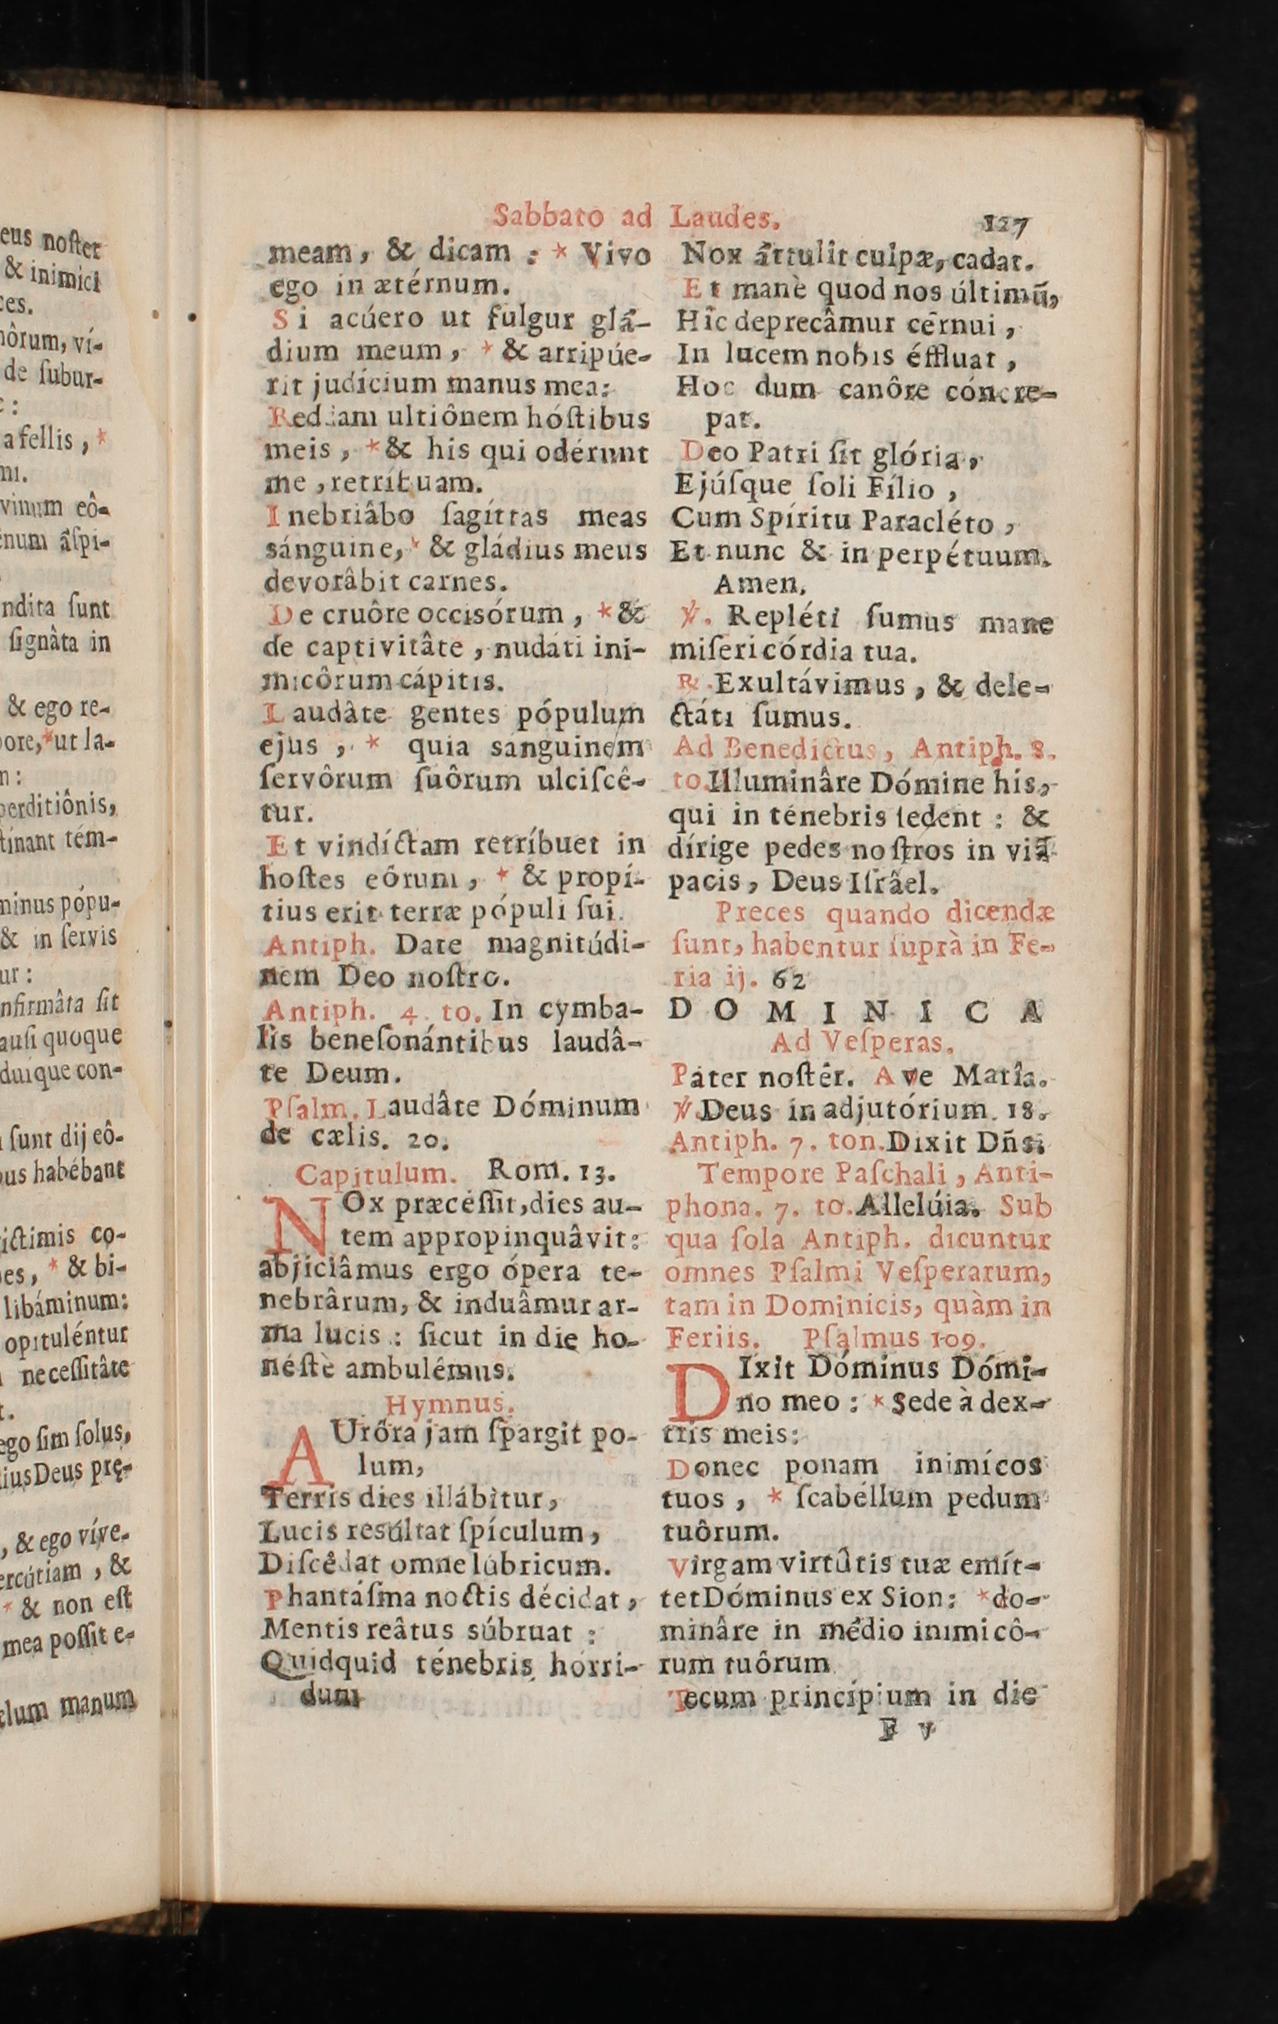 eus noſter
& inimici
ces.
nôrum, ví-
de ſubur-
a fellis, *
ni.
vinum eô-
énum áſpi-
ndita ſunt
ſignâta in
& ego re-
pore,* ut la-
m:
perditiônis,
ſtínant tém-
minus pópu-
& in ſervis
ur:
nfirmâta ſit
auſi quoque
duíque con-
ſunt dij eô-
bus habébant
íctimis co-
es, * & bi-
libáminum:
opituléntur
neceſſitâte
t.
ego ſim ſolus,
lius Deus prę-
, & ego víve-
ercútiam, &
* & non eſt
mea poſſit e-
ælum manum
Sabbato ad Laudes. 127
meam, & dicam : * Vivo
ego in ætérnum.
Si acúero ut fulgur glá-
dium meum, * & arripúe-
rit judícium manus mea:
Reddam ultiônem hóſtibus
meis, * & his qui odérunt
me, retríbuam.
Inebriâbo ſagíttas meas
sánguine, * & gládius meus
devorâbit carnes.
De cruôre occisórum, * &
de captivitâte, nudáti ini-
micôrum cápitis.
Laudâte gentes pópulum
ejus, * quia sanguinem
ſervôrum ſuôrum ulciſcê-
tur.
Et vindíctam retríbuet in
hoſtes eôrum, * & propí-
tius erit terræ pópuli ſui.
Antiph. Date magnitúdi-
nem Deo noſtro.
Antiph. 4. to. In cymba-
lis beneſonántibus laudâ-
te Deum.
Pſalm. Laudâte Dóminum
de cælis. 20.
Capitulum. Rom. 13.
NOx præceſſit, dies au-
tem appropinquâvit:
abjiciâmus ergo ópera te-
nebrârum, & induâmur ar-
ma lucis : ſicut in die ho-
néſtè ambulémus.
Hymnus.
AUrôra jam ſpargit po-
lum,
Terris dies illábitur,
Lucis resúltat ſpículum,
Diſcêdat omne lúbricum.
Phantáſma noctis décidat,
Mentis reâtus súbruat :
Quidquid ténebris horri-
dum
Nox áttulit culpæ, cadat.
Et manè quod nos últimū,
Hîc deprecâmur cérnui,
In lucem nobis éffluat,
Hoc dum canôre cóncre-
pat.
Deo Patri ſit glória,
Ejúſque ſoli Fílio,
Cum Spíritu Paracléto,
Et nunc & in perpétuum.
Amen.
℣. Repléti ſumus mane
miſericórdia tua.
℟. Exultávimus, & dele-
ctáti ſumus.
Ad Benedictus, Antiph. 8.
to. Illuminâre Dómine his,
qui in ténebris ſedent : &
dírige pedes noſtros in viā
pacis, Deus Iſrâel.
Preces quando dicendæ
ſunt, habentur ſuprà in Fe-
ria ij. 62
DOMINICA
Ad Veſperas.
Páter noſtêr. Ave Marîa.
℣. Deus in adjutórium. 18.
Antiph. 7. ton. Dixit Dñs.
Tempore Paſchali, Anti-
phona. 7. to. Allelúia. Sub
qua ſola Antiph. dicuntur
omnes Pſalmi Veſperarum,
tam in Dominicis, quàm in
Feriis. Pſalmus 109.
DIxit Dóminus Dómi-
no meo : * Sede à dex-
tris meis:
Donec ponam inimícos
tuos, * ſcabéllum pedum
tuôrum.
Virgam virtûtis tuæ emít-
tet Dóminus ex Sion: * do-
minâre in médio inimicô-
rum tuôrum
Tecum princípium in die
F v